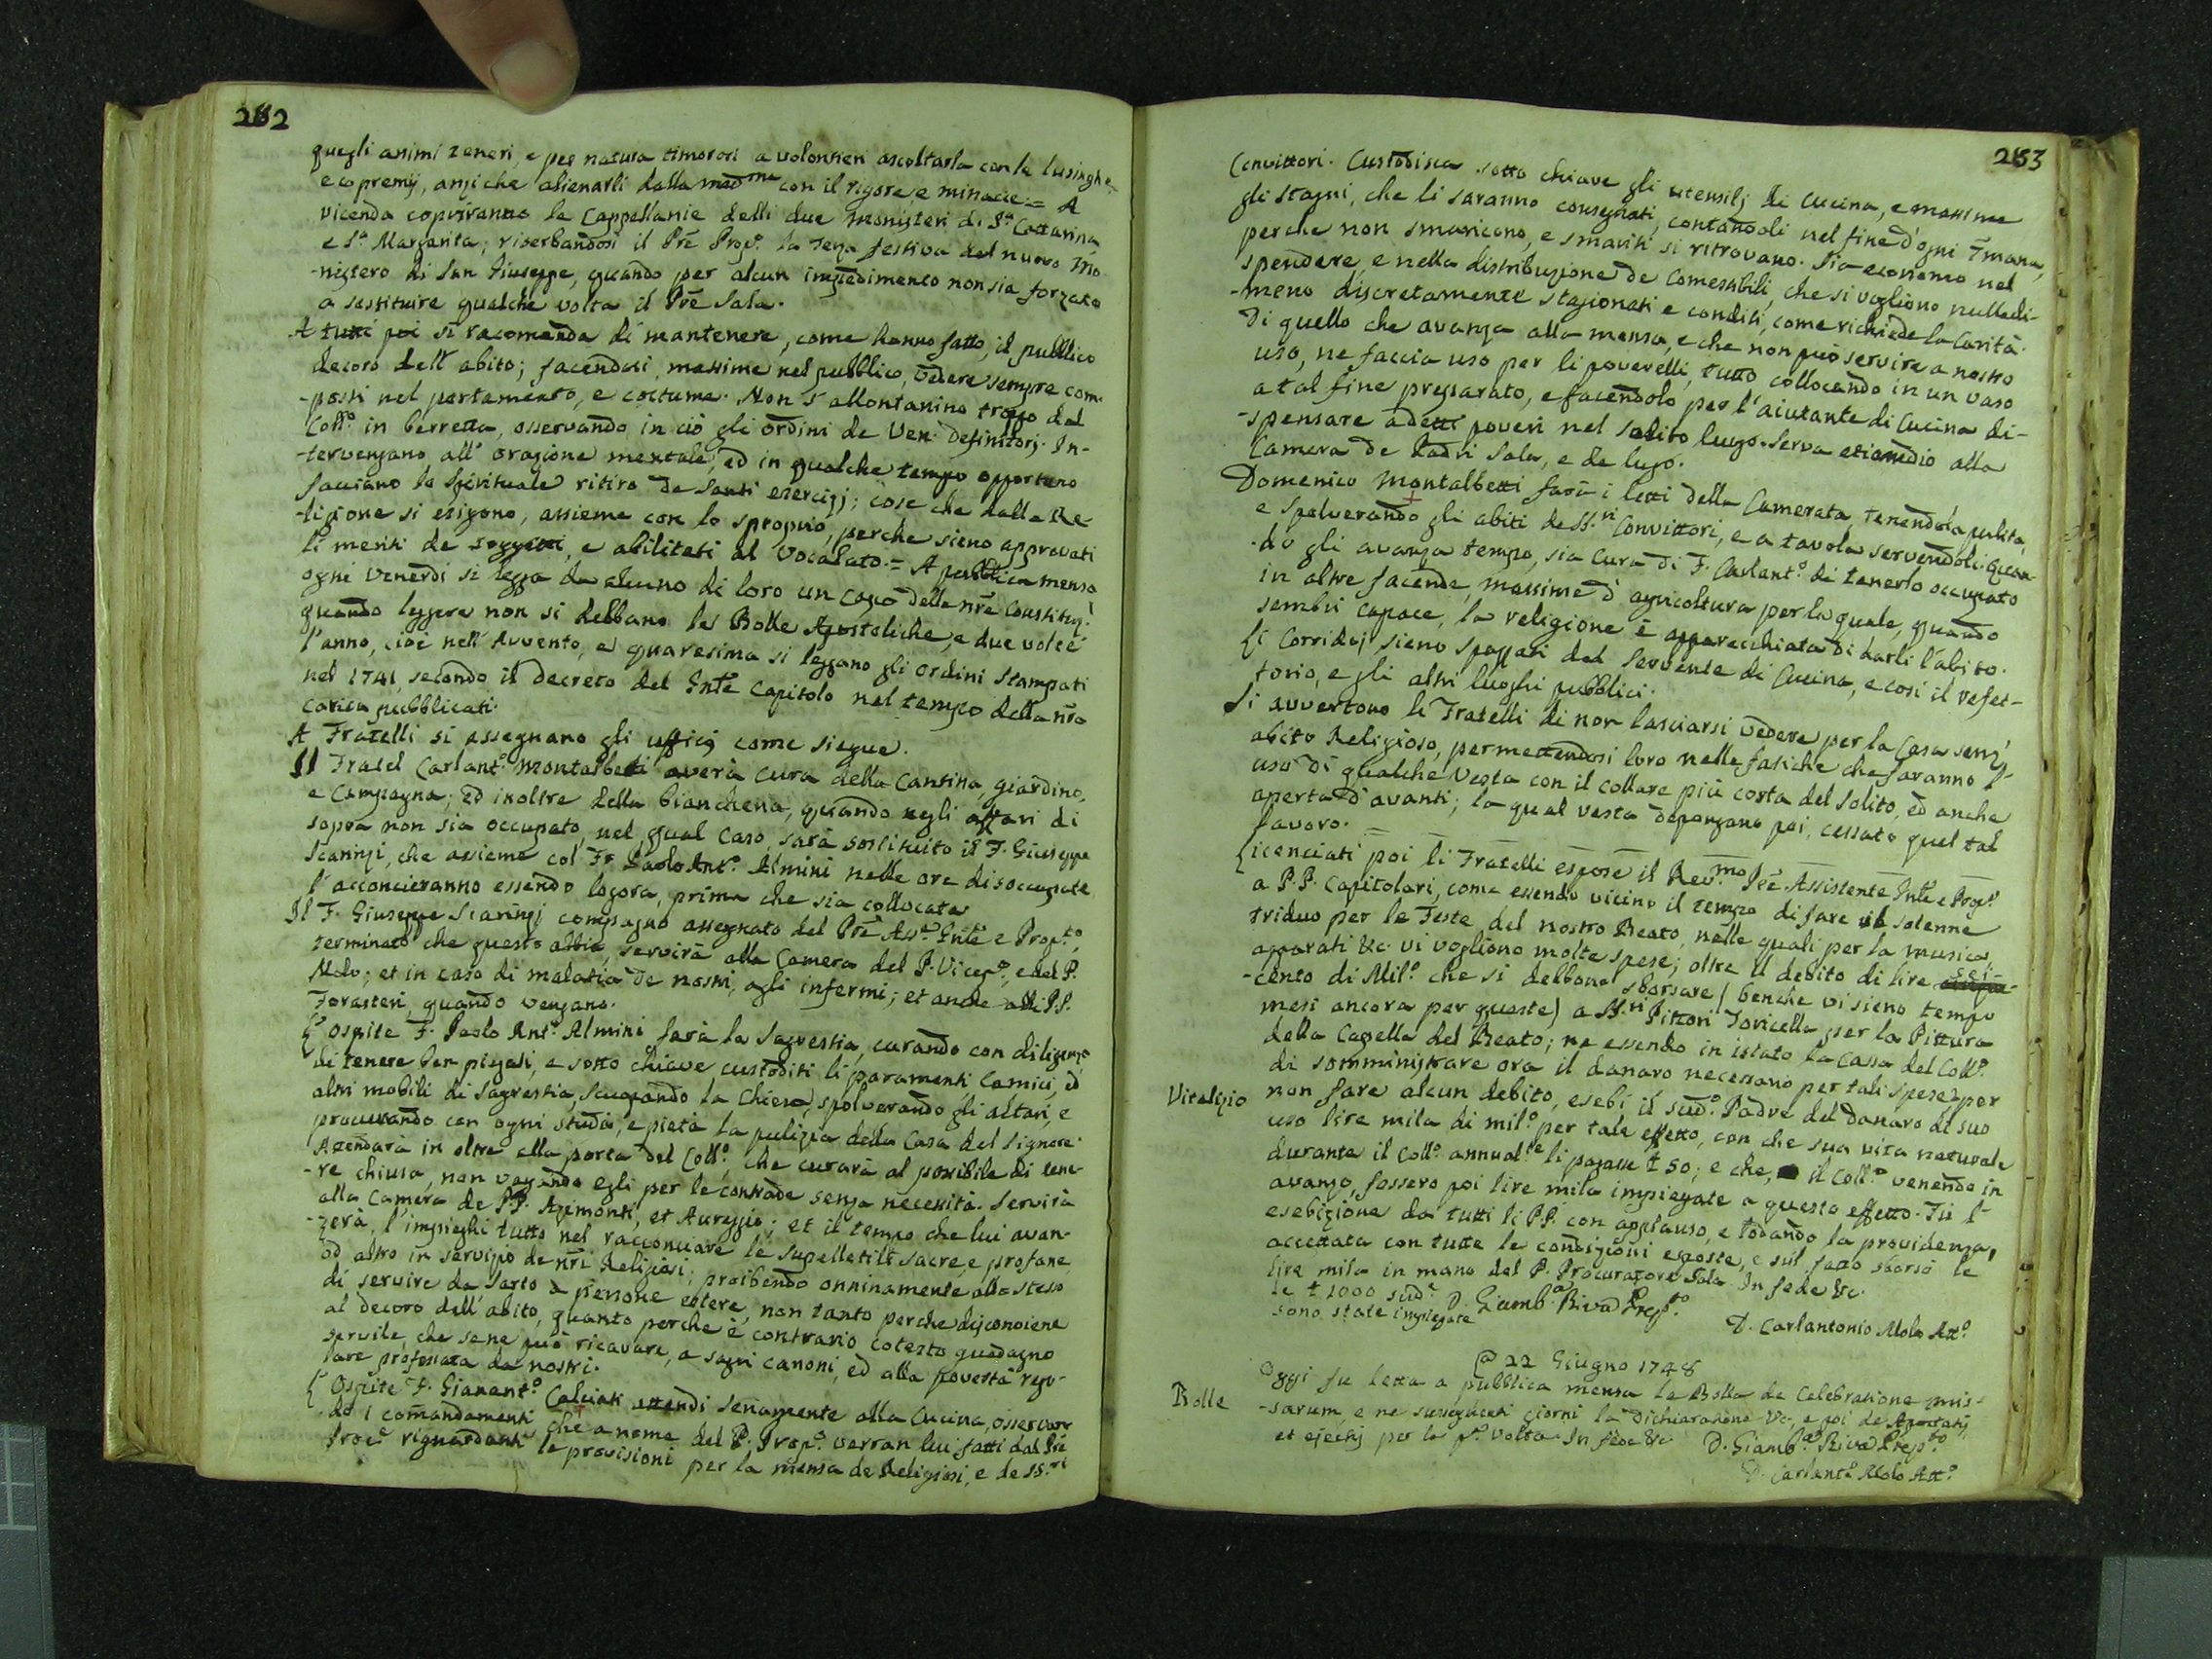 282
quegli animi teneri, e per natura timorosi a volontieri ascoltarla con le lusinghe,
e co premij, anziche alienarli dalla medma con il rigore, e minacie = A
vicenda copriranno le Cappellanie delli due Monisteri di Sa Cattarina,
e Sa Margarita; riserbandosi il Pre Propo la terza festiva del nuovo Mo-
-nistero di San Giuseppe, quando per alcun impedimento non sia forzato
a sostituire qualche volta il Pre Sala.
A tutti poi si racomanda di mantenere, come hanno fatto, il pubblico
decoro dell' abito; facendosi, massime nel pubblico, vedere sempre com-
-posti nel portamento, e costume. Non s' allontanino troppo dal
Collo in berretta, osservando in ciò gli ordini de Ven. Definitorj. In-
-tervengano all' orazione mentale, ed in qualche tempo opportuno
facciano lo spirituale ritiro de santi esercizj; cose che dalla Re-
-ligione si esigono, assieme con lo sproprio, perche sieno approvati
li meriti de soggetti, e abilitati al Vocalato. = A pubblica mensa
ogni Venerdi si legga da alcuno di loro un capo delle nre Constituz.i
quando leggere non si debbano le Bolle Apostoliche, e due volte
l'anno, cioè nell' Avvento, e quaresima si leggano gli ordini stampati
nel 1741, secondo il decreto del Gnle Capitolo nel tempo della nra
carica pubblicati.
A Fratelli si assegnano gli ufficj come siegue.
Il Fratel Carlanto Montalbetti averà cura della Cantina, giardino,
e Campagna; ed inoltre della biancheria, quando negli affari di
sopra non sia occupato, nel qual caso, sarà sostituito il F. Giuseppe
Scarinzi, che assieme col Fr Paolo Anto Almini nelle ore disoccupate
l'acconcieranno essendo logora, prima che sia collocata
Il F. Giuseppe Scarinzj compagno assegnato del Pre Asse Gnle e Propto,
terminato che questo abbia, servirà alla Camera del P. Vicepo, e del P.
Molo; et in caso di malatia de nostri, agli infermi; et anche alli PP.
Forasteri, quando vengano.
L' ospite F. Paolo Anto Almini farà la Sagrestia, curando con diligenza
di tenere ben piegati, e sotto chiave custoditi li paramenti, Camici, ed
altri mobili di Sagrestia, scuopando la Chiesa, spolverando gli altari, e
procurando con ogni studio, e pietà la pulizia della Casa del Signore.
Attenderà in oltre alla porta del Collo, che curarà al possibile di tene-
-re chiusa, non vagando egli per le contrade senza necessità. Servirà
alla Camera de PP. Azimonti, et Aureggio; et il tempo che lui avan-
-zerà, l'impieghi tutto nel racconciare le supelletili sacre, e profane,
od altro in servizio de nri Religiosi; proibendo onninamente allo stesso
di servire da sarto a persone estere, non tanto perche disconviene
al decoro dell' abito, quanto perche è contrario cotesto guadagno
servile, che se ne può ricavare, a sagri canoni, ed alla povertà rego-
lare professata da nostri.
L' Ospite F. Giananto Calciati attendi seriamente alla Cucina, osservan-
do i comandamenti che a nome del P. Propo verran lui fatti dal Pre
Proce riguardanti le provisioni per la mensa de Religiosi, e de SS.ri
283
Convittori. Custodisca sotto chiave gli utensilj di Cucina, e massime
gli stagni, che li saranno consegnati, contandoli nel fine d'ogni 7mana,
perche non smariscano, e smariti si ritrovano. Sia economo nel
spendere, e nella distribuzione de comestibili, che si vogliono nulladi-
-meno discretamente stagionati e conditi, come richiede la Carità.
Di quello che avanza alla mensa, e che non può servire a nostro
uso, ne faccia uso per li poverelli, tutto collocando in un vaso
a tal fine preparato, e facendolo per l'aiutante di Cucina di-
-spensare a detti poveri nel solito luogo. Serva etiamdio alla
Camera de Padri Sala, e de Lugo.
Domenico Montalbetti farà i letti della Camerata, tenendola pulita,
e spolverando gli abiti de SS.ri Convittori, e a tavola servendoli. Quan-
-do gli avanza tempo, sia cura di F. Carlanto di tenerlo occupato
in altre facende, massime d' agricoltura per la quale, quando
sembri capace, la religione è apparecchiata di darli l'abito.
Li Corridoj sieno spazzati dal Servente di Cucina, e cosi il refet-
torio, e gli altri luoghi pubblici.
Si avvertono li Fratelli di non lasciarsi vedere per la Casa senz'
abito Religioso, permettendosi loro nelle fatiche che faranno l'
uso di qualche vesta con il collare più corta del solito, ed anche
aperta d'avanti; la qual vesta depongano poi, cessato quel tal
lavoro.
Licenciati poi li Fratelli espose il Revmo Pre Assistente Gnle e Propo
a P.P. Capitolari, come essendo vicino il tempo di fare il solenne
triduo per le Feste del nostro Beato, nelle quali per la musica,
apparati &c. vi vogliono molte spese; oltre il debito di lire sei-
-cento di Milo che si debbono sborsare (benche vi sieno tempo
mesi ancora per queste) a SS.ri Pittori Toricella per la Pittura
della Capella del Beato; ne essendo in istato la Cassa del Collo
di somministrare ora il danaro necessario per tali spese, per
Vitalizio non fare alcun debito, esebì il sudo Padre del danaro di suo
uso lire mila di milo per tale effetto, con che sua vita naturale
durante il Collo annualte li pagasse £ 50; e che, il Collo venendo in
avanzo, fossero poi lire mila impiegate a questo effetto. Fù l'
esebizione da tutti li PP. con applauso, e lodando la providenza,
accettata con tutte le condizioni esposte, e sul fatto sborsò le
lire mila in mano del P. Procuratore Sala. In fede &c.
le £ 1000 sude D. Giamba Riva Prepto
sono state impiegate
D. Carlantonio Molo Atto
@ 22 Giugno 1748
Bolle Oggi fu letta a pubblica mensa la Bolla de Celebratione mis-
-sarum, e ne susseguenti giorni la Dichiarazione &c., e poi de Apostatis,
et ejectis per la pa volta. In fede &c. D. Giamba Riva Prepto
D. Carlanto Molo Atto